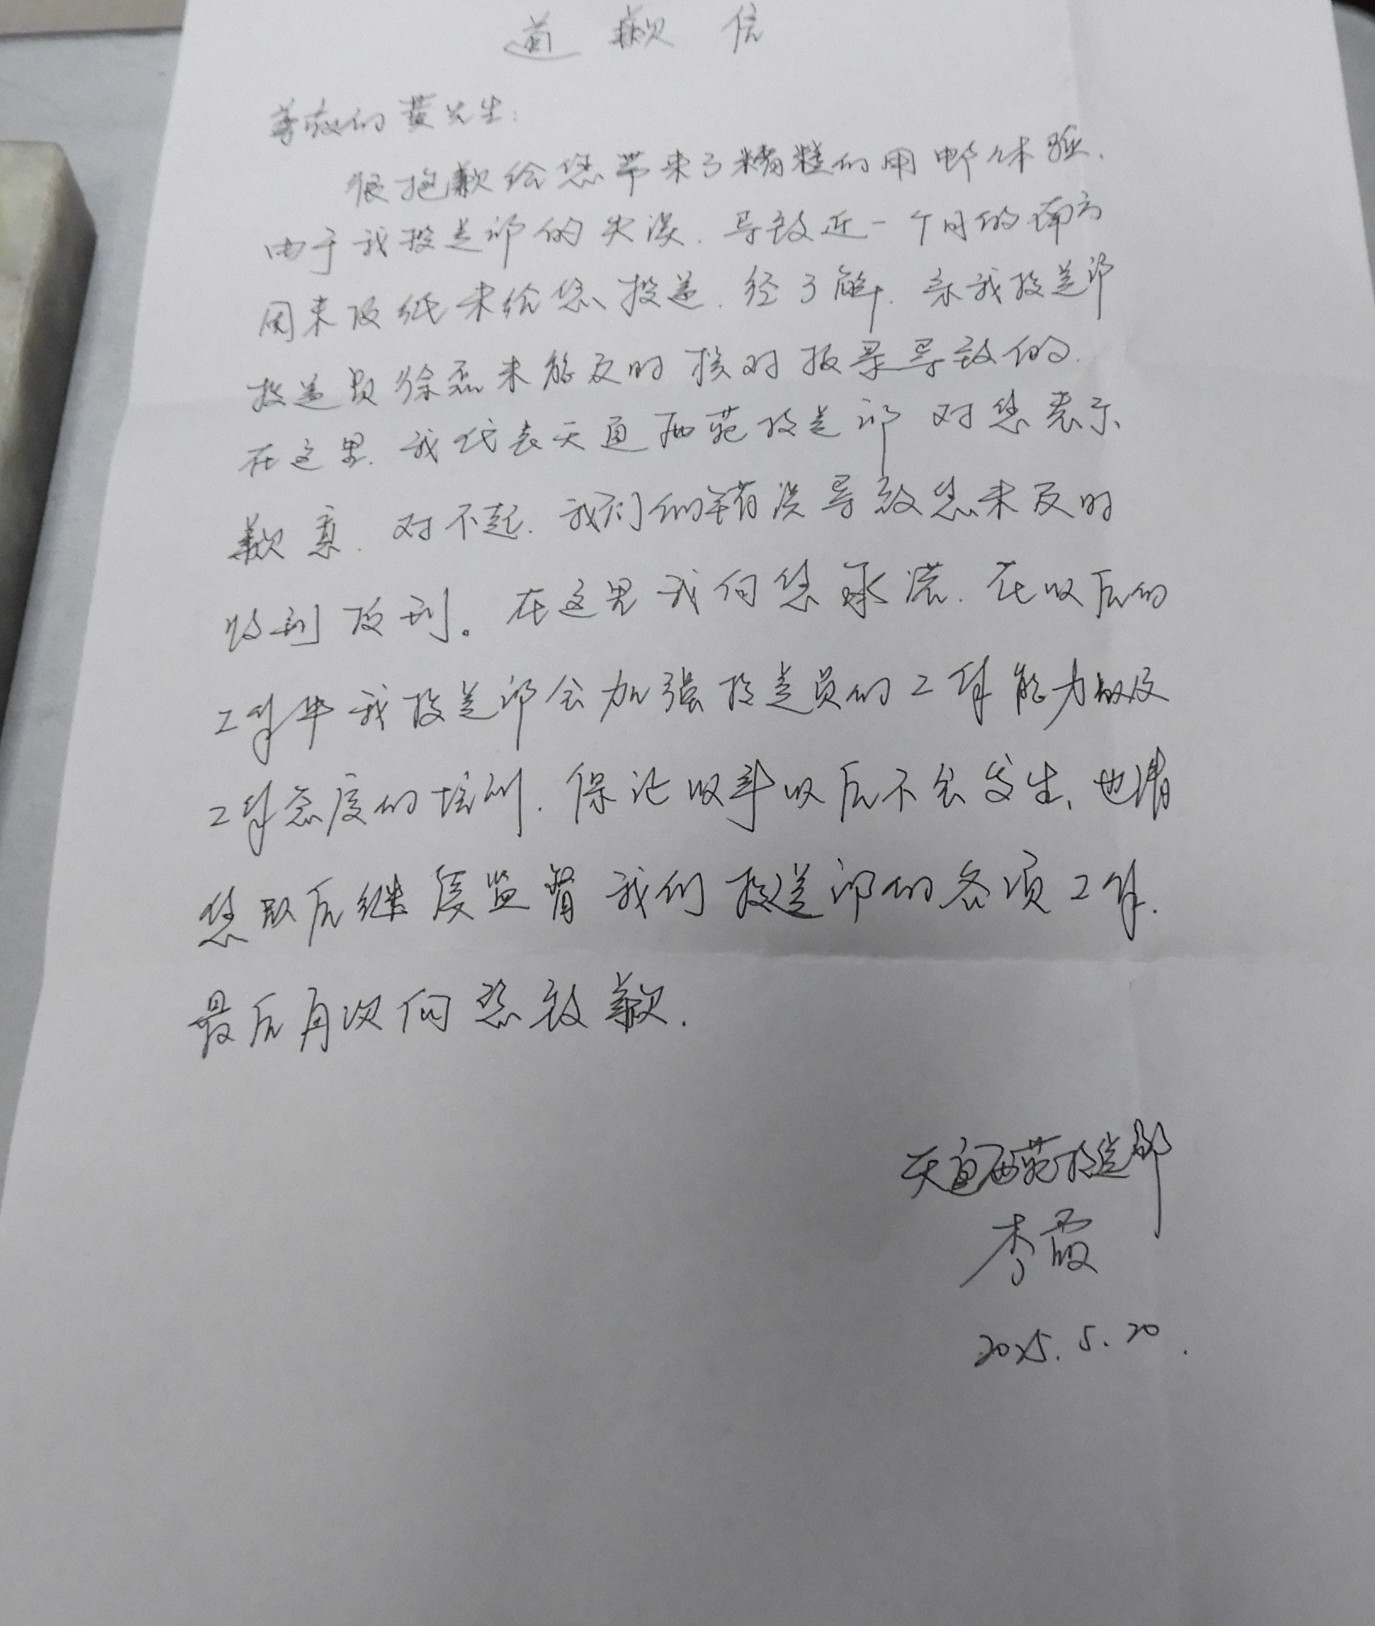 道歉信
尊敬的黄先生:
很抱歉给您带来了糟糕的用邮体验.
由于我投递部的失误.导致近一个月的南方
周末报纸未给您投递.经了解.系我投递部
投递员徐磊未能及时核对报录导致的.
在这里.我代表天通西苑投递部对您表示
歉意.对不起.我们的错误导致您未及时
收到报刊。在这里我向您承诺.在以后的
工作中我投递部会加强投递员的工作能力以及
工作态度的培训.保证以后不会发生、也请
您以后继续监督我们投递部的各项工作.
最后再次向您致歉.
天通西苑投递部
李霞
2025.5.20.